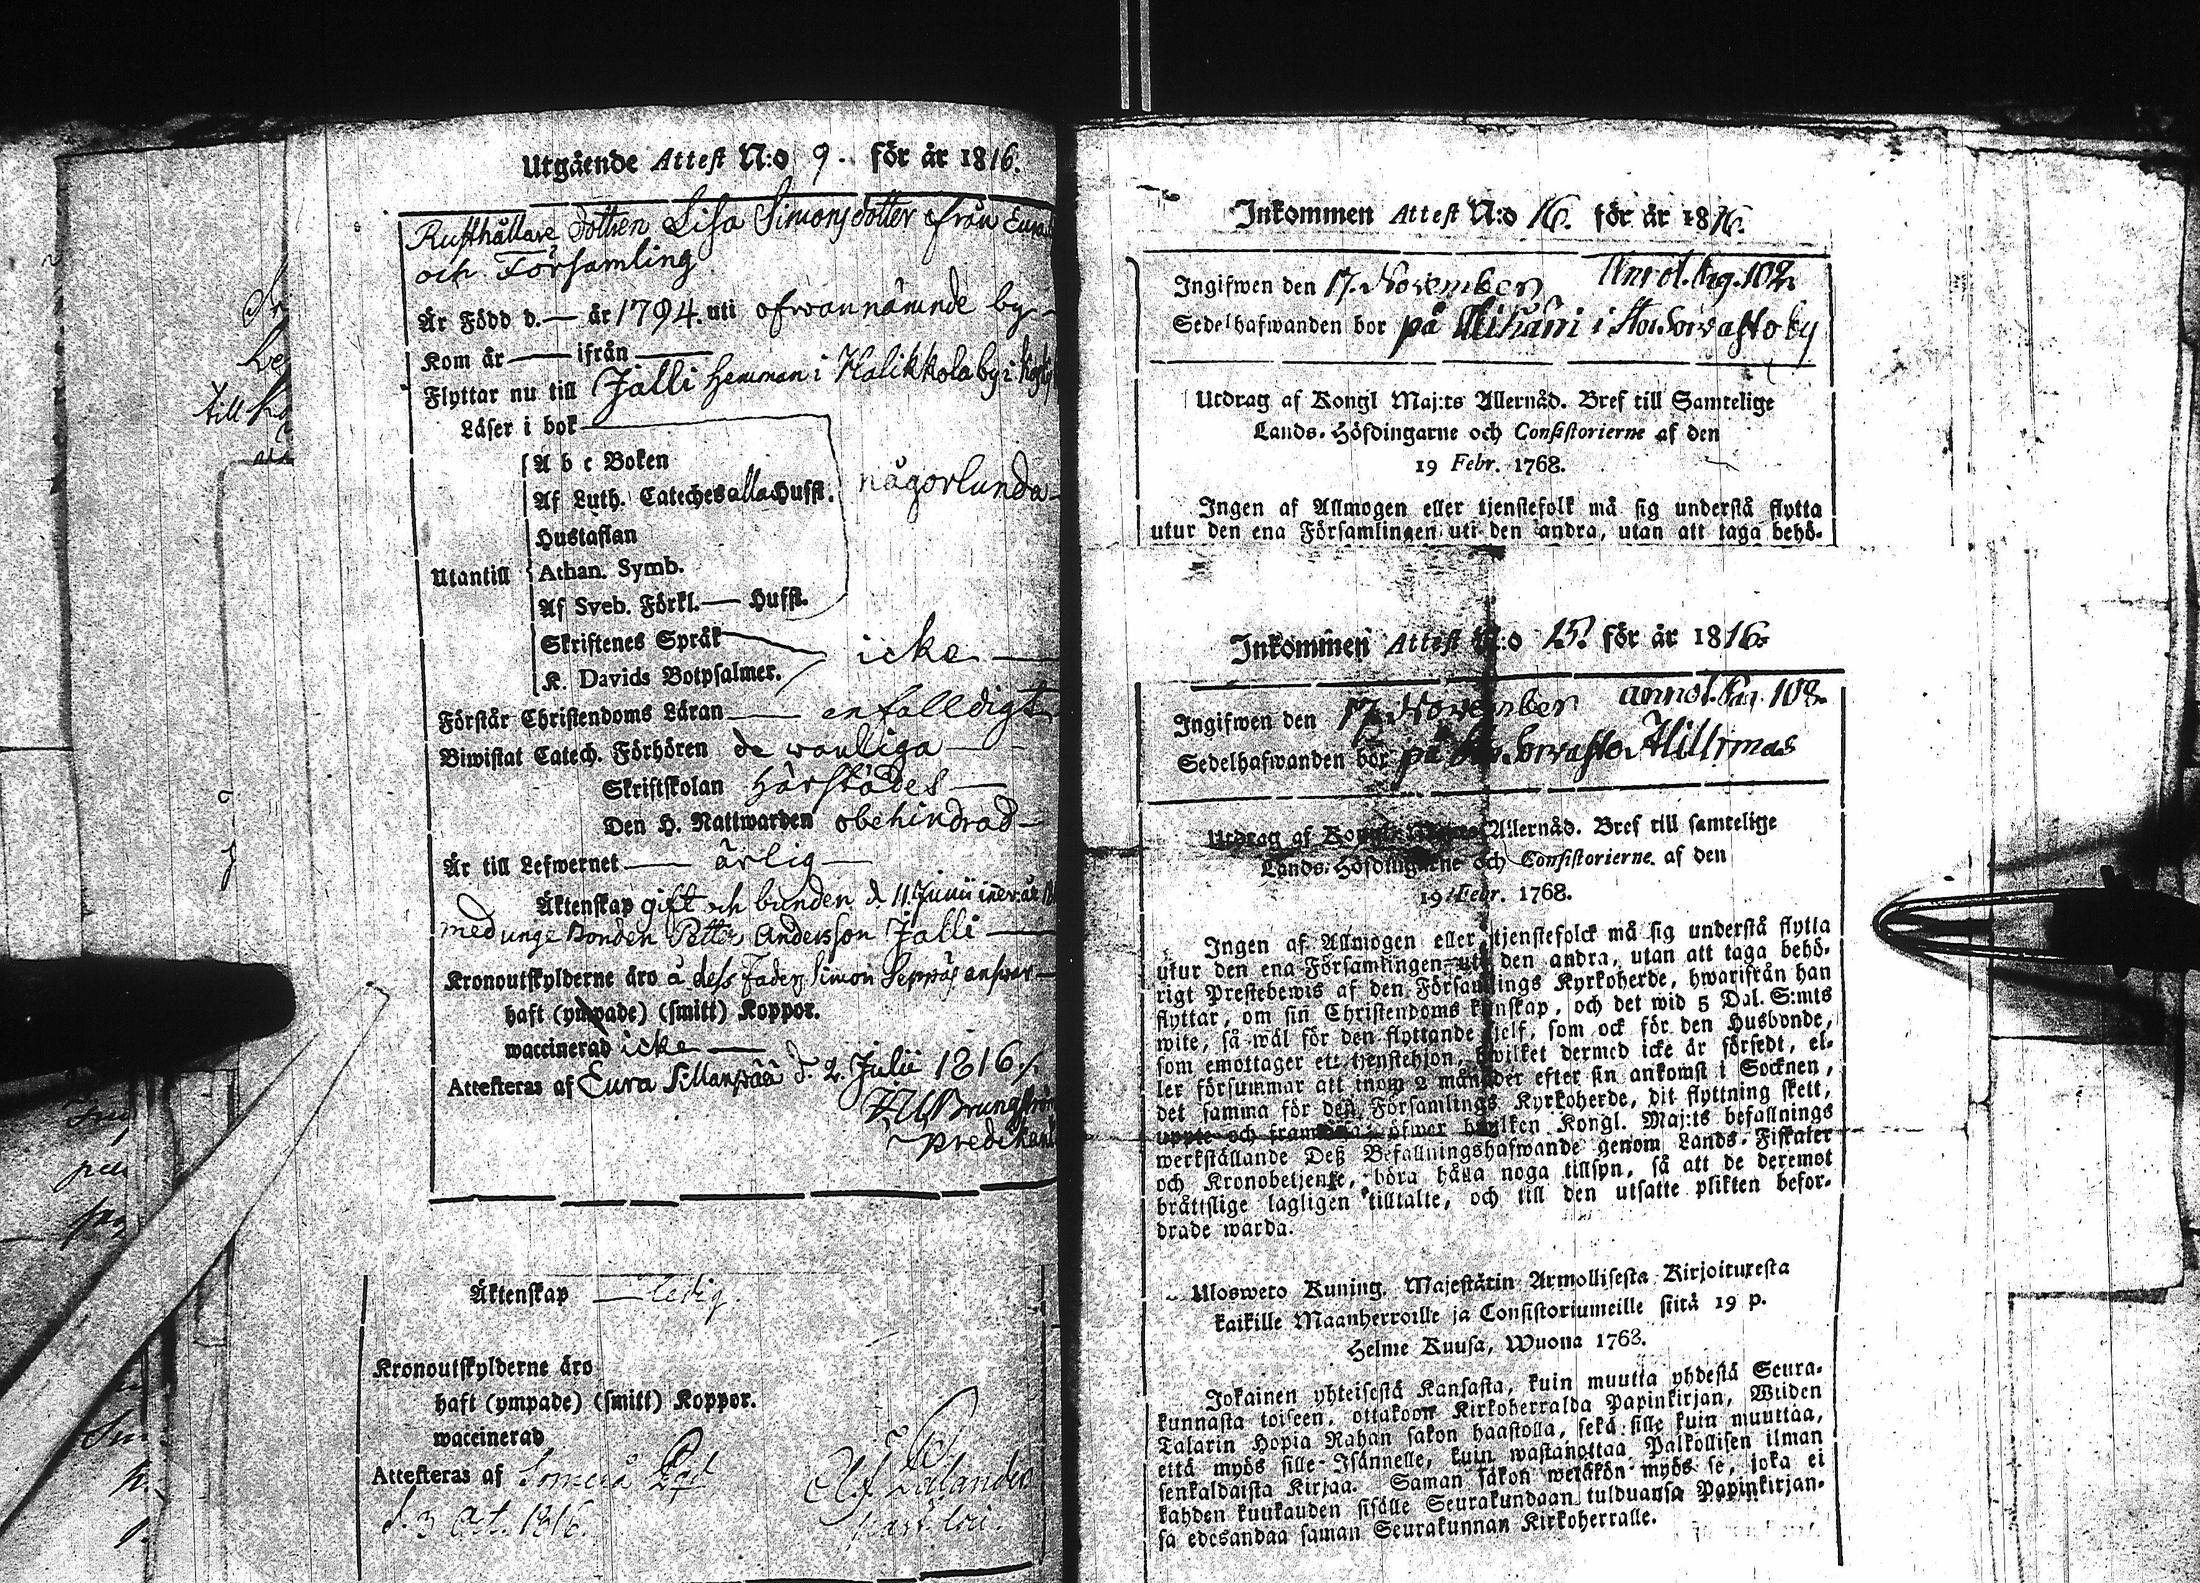 Utgående Attest N:o 9. för år 1816.
Rusthållare Dottren Lisa Simonsdotter från Eura
och Församling
Är Född d. — år 1794. uti ofwannämnde by
Kom år — ifrån —
Flyttar nu till Jalli Hemman i Halikkola by i
Läser i bok
A b c Boken
Af Luth. Cateches alla Hufst. någorlunda
Hustaflan
Utantill Athan. Symb.
Af Sveb. Förkl. — Hufst.
Skriftenes Språk
K. Davids Botpsalmer. icke
Förstår Christendoms Läran — enfalldigt
Biwistat Catech. Förhören de wanliga
Skriftskolan härstädes
Den H. Nattwarden obehindrad
Är till Lefwernet — ärlig
Äktenskap gift och bunden d 11. Junii
med unge Bonden Petter Andersson Jalli
Kronoutskylderne äro å dess Fader Simon
haft (ympade) (smitt) Koppor.
waccinerad icke
Attesteras af Eura d. 2. Julii 1816
Äktenskap — ledig.
Kronoutskylderne äro
haft (ympade) (smitt) Koppor.
waccinerad
Attesteras af Somero
d. 3 Oct. 1816.
Inkommen Attest N:o 16. för år 1816.
Ingifwen den 17. November Annot. pag. 102
Sedelhafwanden bor på i by
Utdrag af Kongl Maj:ts Allernåd. Bref till Samtelige
Lands-Höfdingarne och Consistorierne af den
19 Febr. 1768.
Ingen af Allmogen eller tjenstefolk må sig understå flytta
utur den ena Församlingen uti den andra, utan att taga behö-
Inkommen Attest N:o 15. för år 1816.
Ingifwen den 17 November annot. pag. 108
Sedelhafwanden bor på
Utdrag af Allernåd. Bref till samtelige
Lands-Höfdingarne och Consistorierne af den
19 Febr. 1768.
Ingen af Allmogen eller tjenstefolck må sig understå flytta
utur den ena Församlingen uti den andra, utan att taga behö-
rigt Prestebewis af den Församlings Kyrkoherde, hwarifrån han
flyttar, om sin Christendoms kunskap, och det wid 5 Dal. S:mts
wite, så wäl för den flyttande sjelf, som ock för den Husbonde,
som emottager ett tjenstehjon, hwilket dermed icke är försedt, el-
ler försummar att inom 2 månader efter sin ankomst i Socknen,
det samma för den Församlings Kyrkoherde, dit flyttning skett,
uppte och framwisa; öfwer hwilken Kongl. Maj:ts befallnings
werkställande Deß Befallningshafwande genom Lands-Fiskaler
och Kronobetjente, böra hålla noga tillsyn, så att de deremot
bråttslige lagligen tilltalte, och till den utsatte plikten befor-
drade warda.
Ulosweto Kuning. Majestätin Armollisesta Kirjoituxesta
kaikille Maanherroille ja Consistoriumeille siitä 19 p.
Helme Kuusa, Wuona 1768.
Jokainen yhteisestä Kansasta, kuin muutta yhdestä Seura-
kunnasta toiseen, ottakoon Kirkoherralda Papinkirjan, Wiiden
Talarin Hopia Rahan sakon haastolla, sekä sille kuin muuttaa,
että myös sille Isännelle, kuin wastanottaa Palkollisen ilman
senkaldaista Kirjaa. Saman sakon wetäkön myös se, joka ei
kahden kuukauden sisälle Seurakundaan tulduansa Papinkirjan-
sa edesandaa saman Seurakunnan Kirkoherralle.